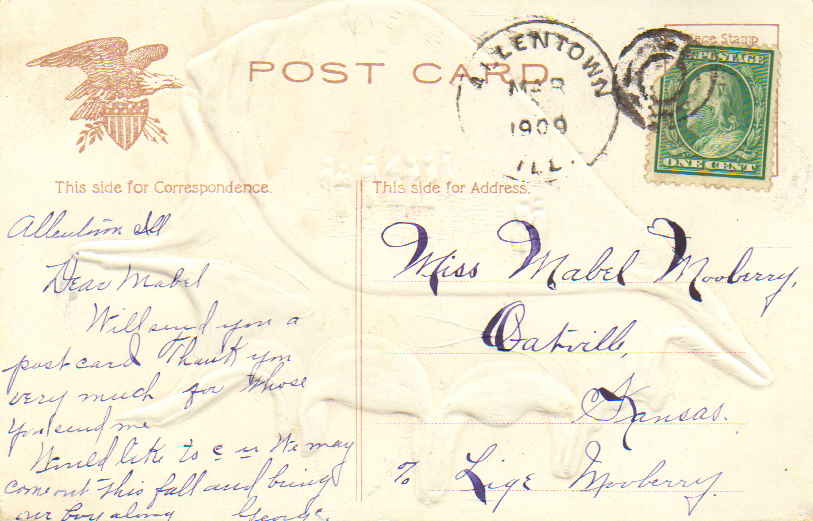 POST CARD
ALLENTOWN
MAR
1909
ILL.
Postage Stamp
U.S. POSTAGE
ONE CENT
This side for Correspondence.
This side for Address.
Allentown Ill
Dear Mabel
Will send you a
post card Thank you
very much for those
You send me
Would like to c u We may
come out this fall and bring
our boy along George.
Miss Mabel Mooberry,
Oatville,
Kansas.
% Lige Mooberry.